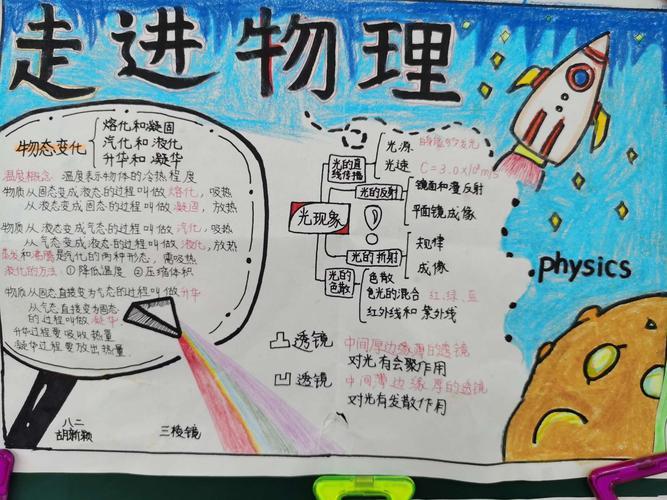 走进物理
物态变化
熔化和凝固
汽化和液化
升华和凝华
温度概念 温度表示物体的冷热程度
物质从固态变成液态的过程叫做熔化，吸热
从液态变成固态的过程叫做凝固，放热
物质从液态变成气态的过程叫做汽化，吸热
从气态变成液态的过程叫做液化，放热
蒸发和沸腾是汽化的两种形态，需吸热
液化的方法：①降低温度 ②压缩体积
物质从固态直接变为气态的过程叫做升华
从气态直接变为固态
的过程叫做凝华
升华过程要吸收热量
凝华过程要放出热量
八二
胡新颖
三棱镜
光现象
光的直线传播
光源
光速 C=3.0×10⁸m/s
光的反射
镜面和漫反射
平面镜成像
光的折射
规律
成像
光的色散
色散
色光的混合 红、绿、蓝
红外线和紫外线
凸透镜 中间厚边缘薄的透镜
对光有会聚作用
凹透镜 中间薄边缘厚的透镜
对光有发散作用
physics